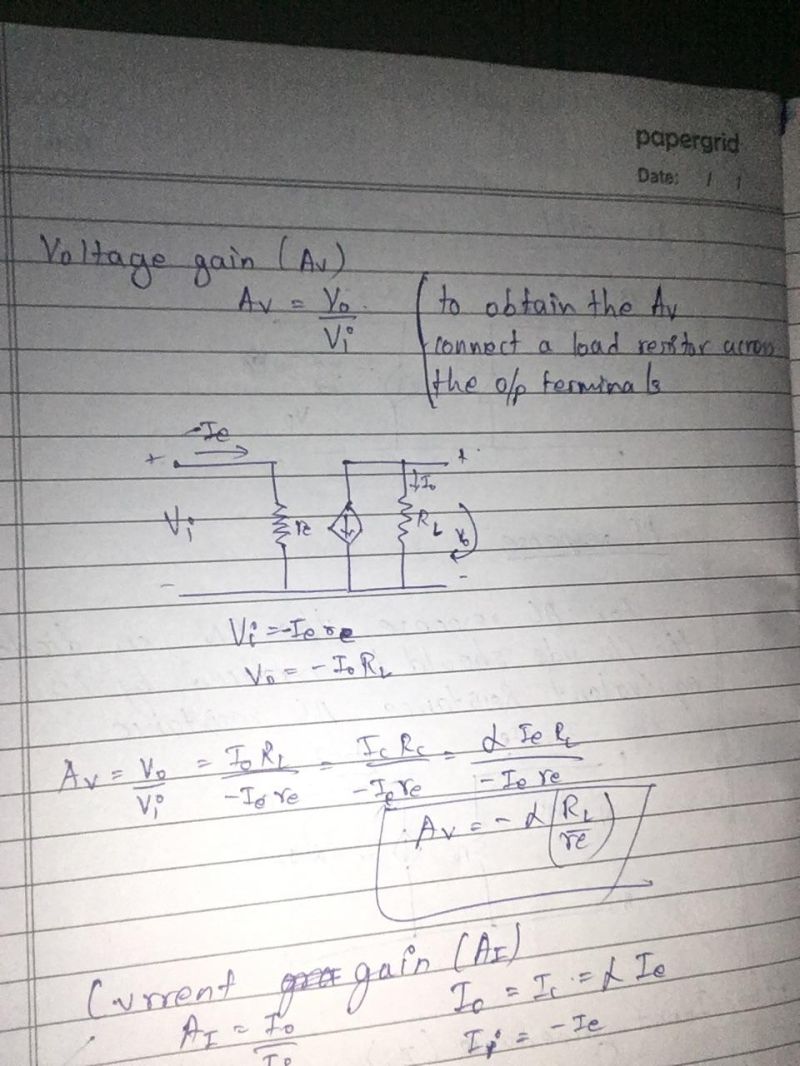 papergrid
Date: / /
Voltage gain (Av)
Av = Vo / Vi
to obtain the Av
connect a load resistor across
the o/p terminals
-Ie
+ +
Io
Vi re RL Vo
- -
Vi = -Ie re
Vo = - Io RL
Av = Vo / Vi = Io RL / -Ie re = Ic Rc / -Ie re = α Ie RL / -Ie re
∴ Av = - α (RL / re)
Current gain (AI)
Io = Ic = α Ie
AI = Io / Ii
Ii = -Ie